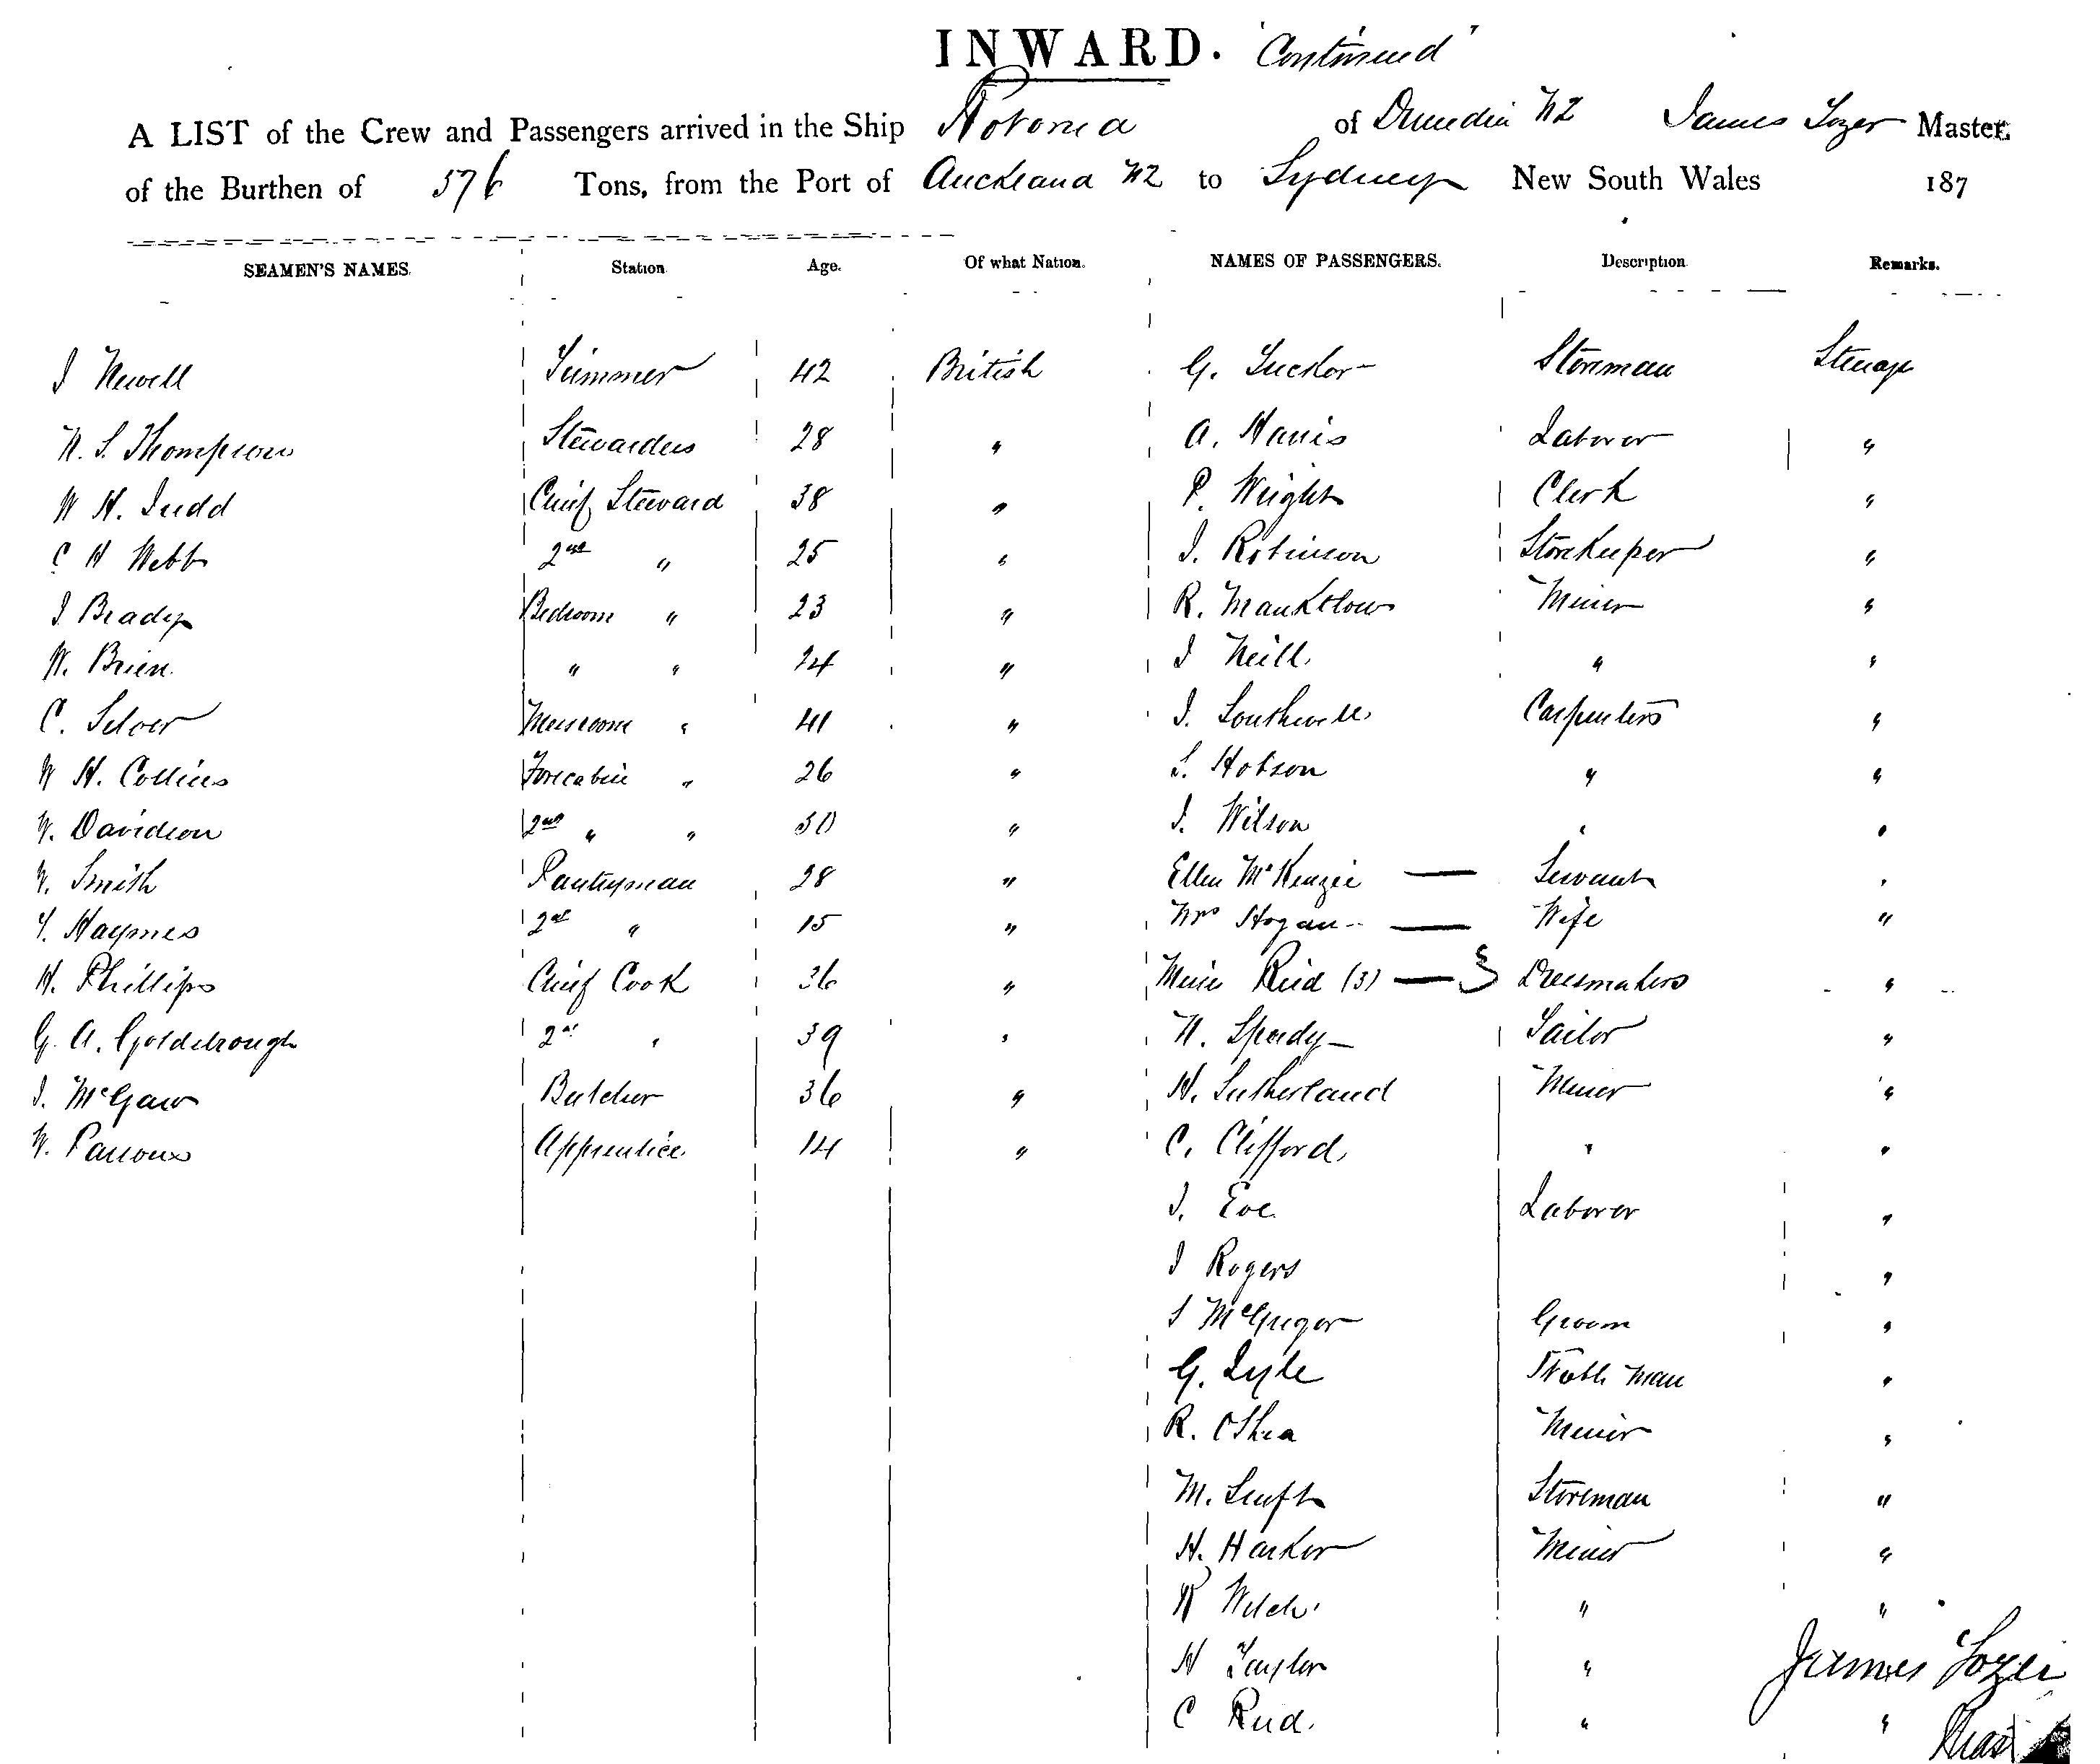 INWARD. "Continued"
A LIST of the Crew and Passengers arrived in the Ship Rotorua of Dunedin NZ James Tozer Master.
of the Burthen of 576 Tons, from the Port of Auckland NZ to Sydney New South Wales 187
SEAMEN'S NAMES. Station Age. Of what Nation. NAMES OF PASSENGERS. Description Remarks.
J Newell Trimmer 42 British G. Tucker Storeman Steerage
S. Thompson Stewardess 28 " A. Harris Laborer "
W H. Judd Chief Steward 38 " P. Wright Clerk "
C H Webb 2nd " 25 " J. Robinson Storekeeper "
J Brady Bedroom " 23 " R. Manktelow Miner "
W. Brien " " 24 " J Neill " "
C. Silver Messroom " 41 " J. Southwell Carpenters "
W H. Collins Forecabin " 26 " S. Hobson " "
W. Davidson 2nd " " 30 " J. Wilson " "
W. Smith Pantryman 28 " Ellen McKenzie — Servant "
Haymes 2nd " 15 " Mrs Hogan — Wife "
H. Phillips Chief Cook 36 " Misses Reid (3) — Dressmakers "
G. A. Goldsbrough 2nd " 39 " Speedy Sailor "
J. McGaw Butcher 36 " H. Sutherland Miner "
W. Apprentice 14 " C. Clifford " "
J. Eve Laborer "
J Rogers "
McGregor Groom "
G. Lyle man "
R. OShea Miner "
M. Storeman "
H. Harker Miner "
Welch " "
H Taylor " "
C Reid. " "
James Tozer